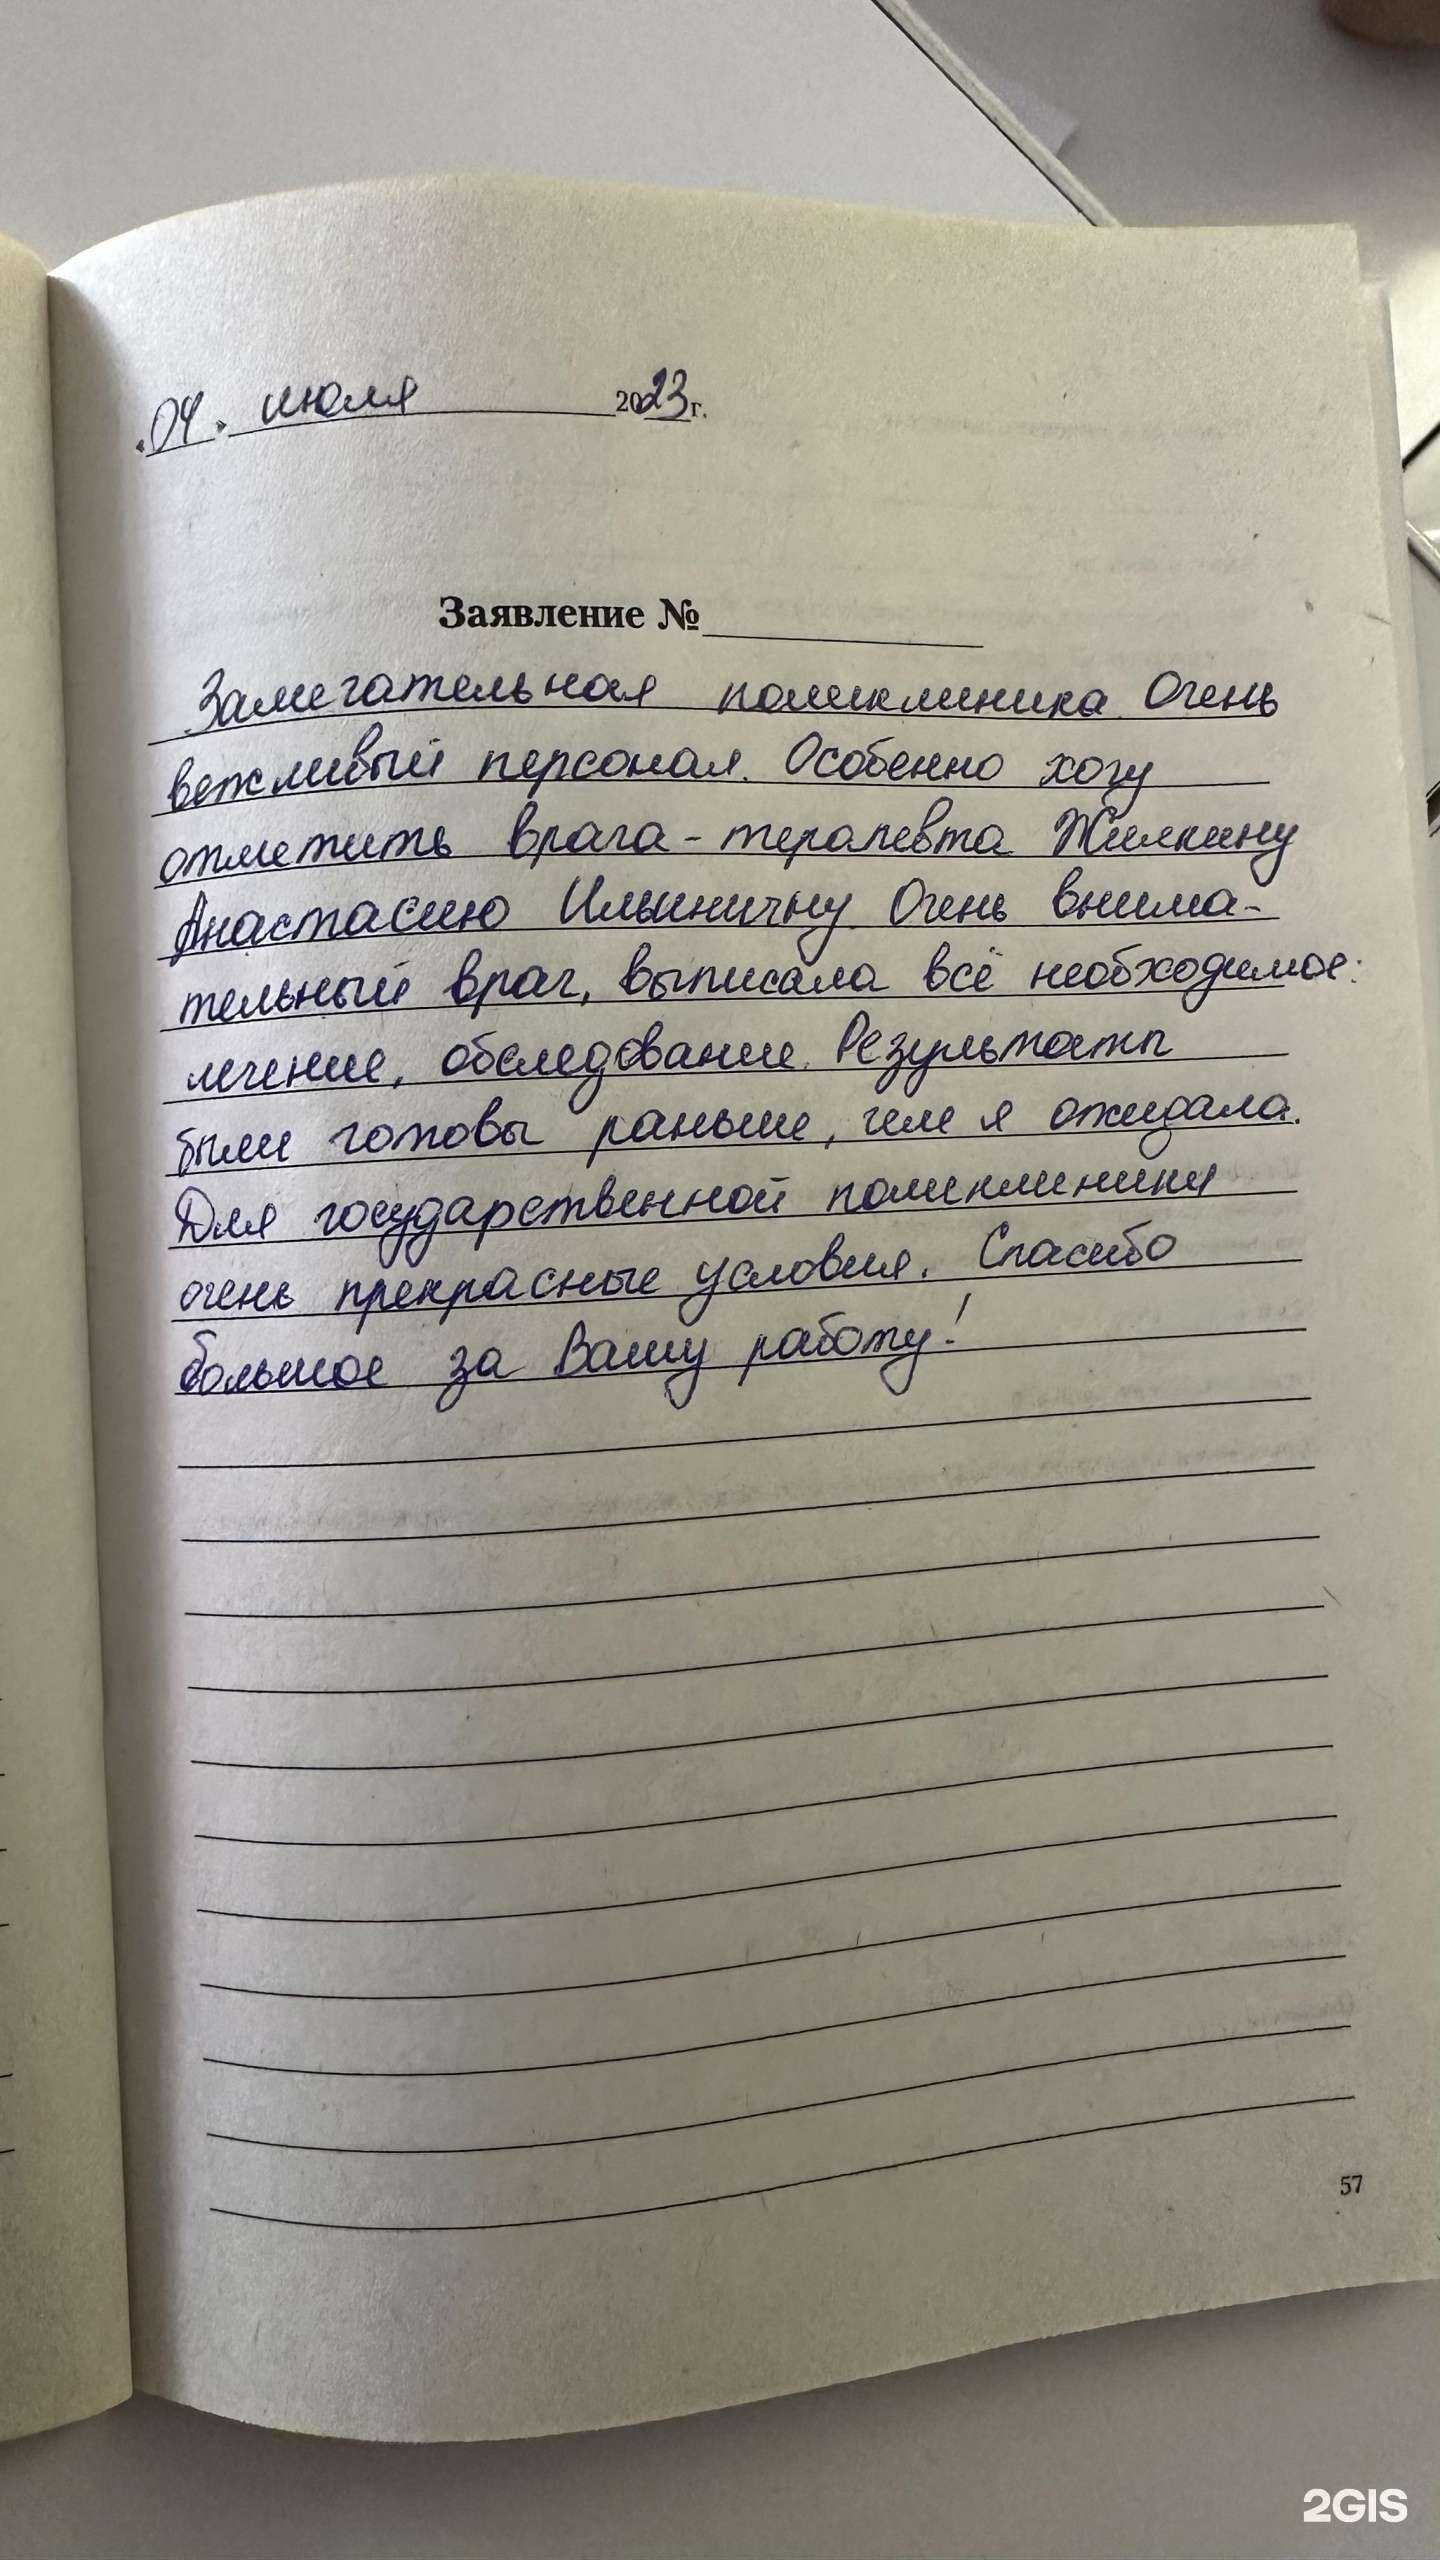 «04» июля 2023 г.
Заявление №
Замечательная поликлиника. Очень
вежливый персонал. Особенно хочу
отметить врача-терапевта Жилкину
Анастасию Ильиничну. Очень внима-
тельный врач, выписала всё необходимое:
лечение, обследование. Результаты
были готовы раньше, чем я ожидала.
Для государственной поликлиники
очень прекрасные условия. Спасибо
большое за Вашу работу!
57
2GIS